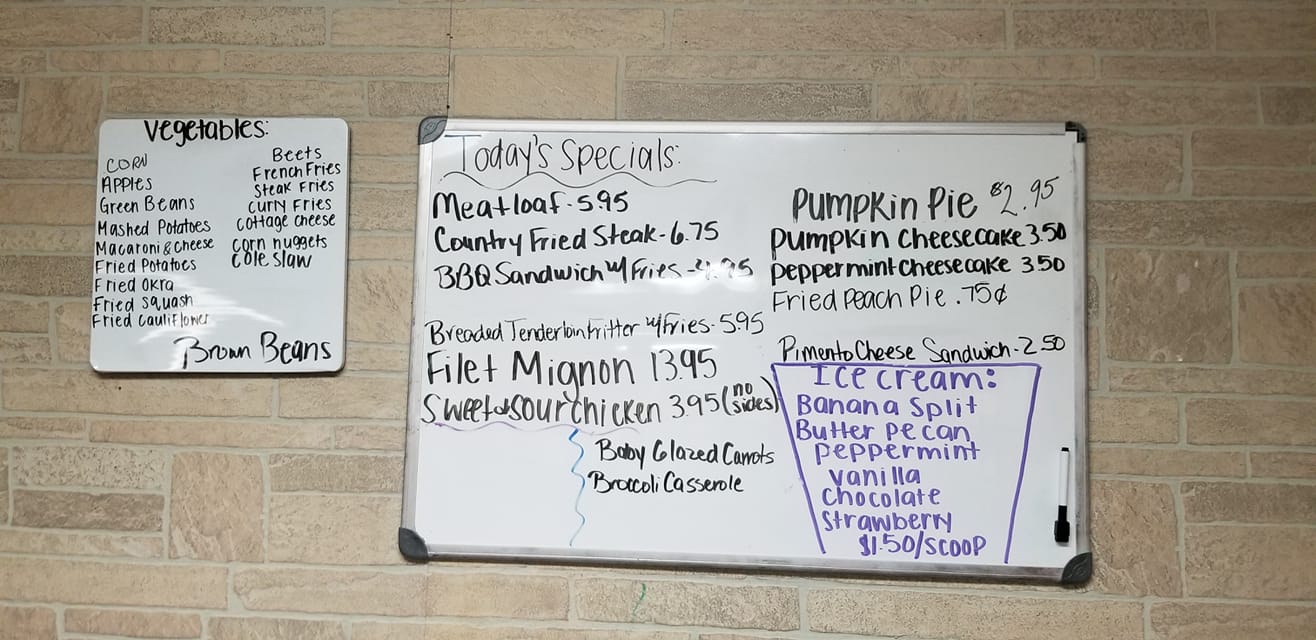 Vegetables:
CORN
APPLES
Green Beans
Mashed Potatoes
Macaroni & cheese
Fried Potatoes
Fried Okra
Fried Squash
Fried Cauliflower
Beets
French Fries
Steak Fries
Curly Fries
Cottage cheese
corn nuggets
Cole Slaw
Brown Beans
Today's Specials:
Meatloaf - 5.95
Country Fried Steak - 6.75
BBQ Sandwich w/ Fries - 4.95
Breaded Tenderloin Fritter w/ Fries - 5.95
Filet Mignon 13.95
Sweet & Sour Chicken 3.95 (no sides)
Baby Glazed Carrots
Broccoli Casserole
Pumpkin Pie $2.95
Pumpkin Cheesecake 3.50
peppermint cheesecake 3.50
Fried Peach Pie .75¢
Pimento Cheese Sandwich - 2.50
Ice cream:
Banana Split
Butter Pecan
peppermint
vanilla
Chocolate
Strawberry
$1.50/scoop